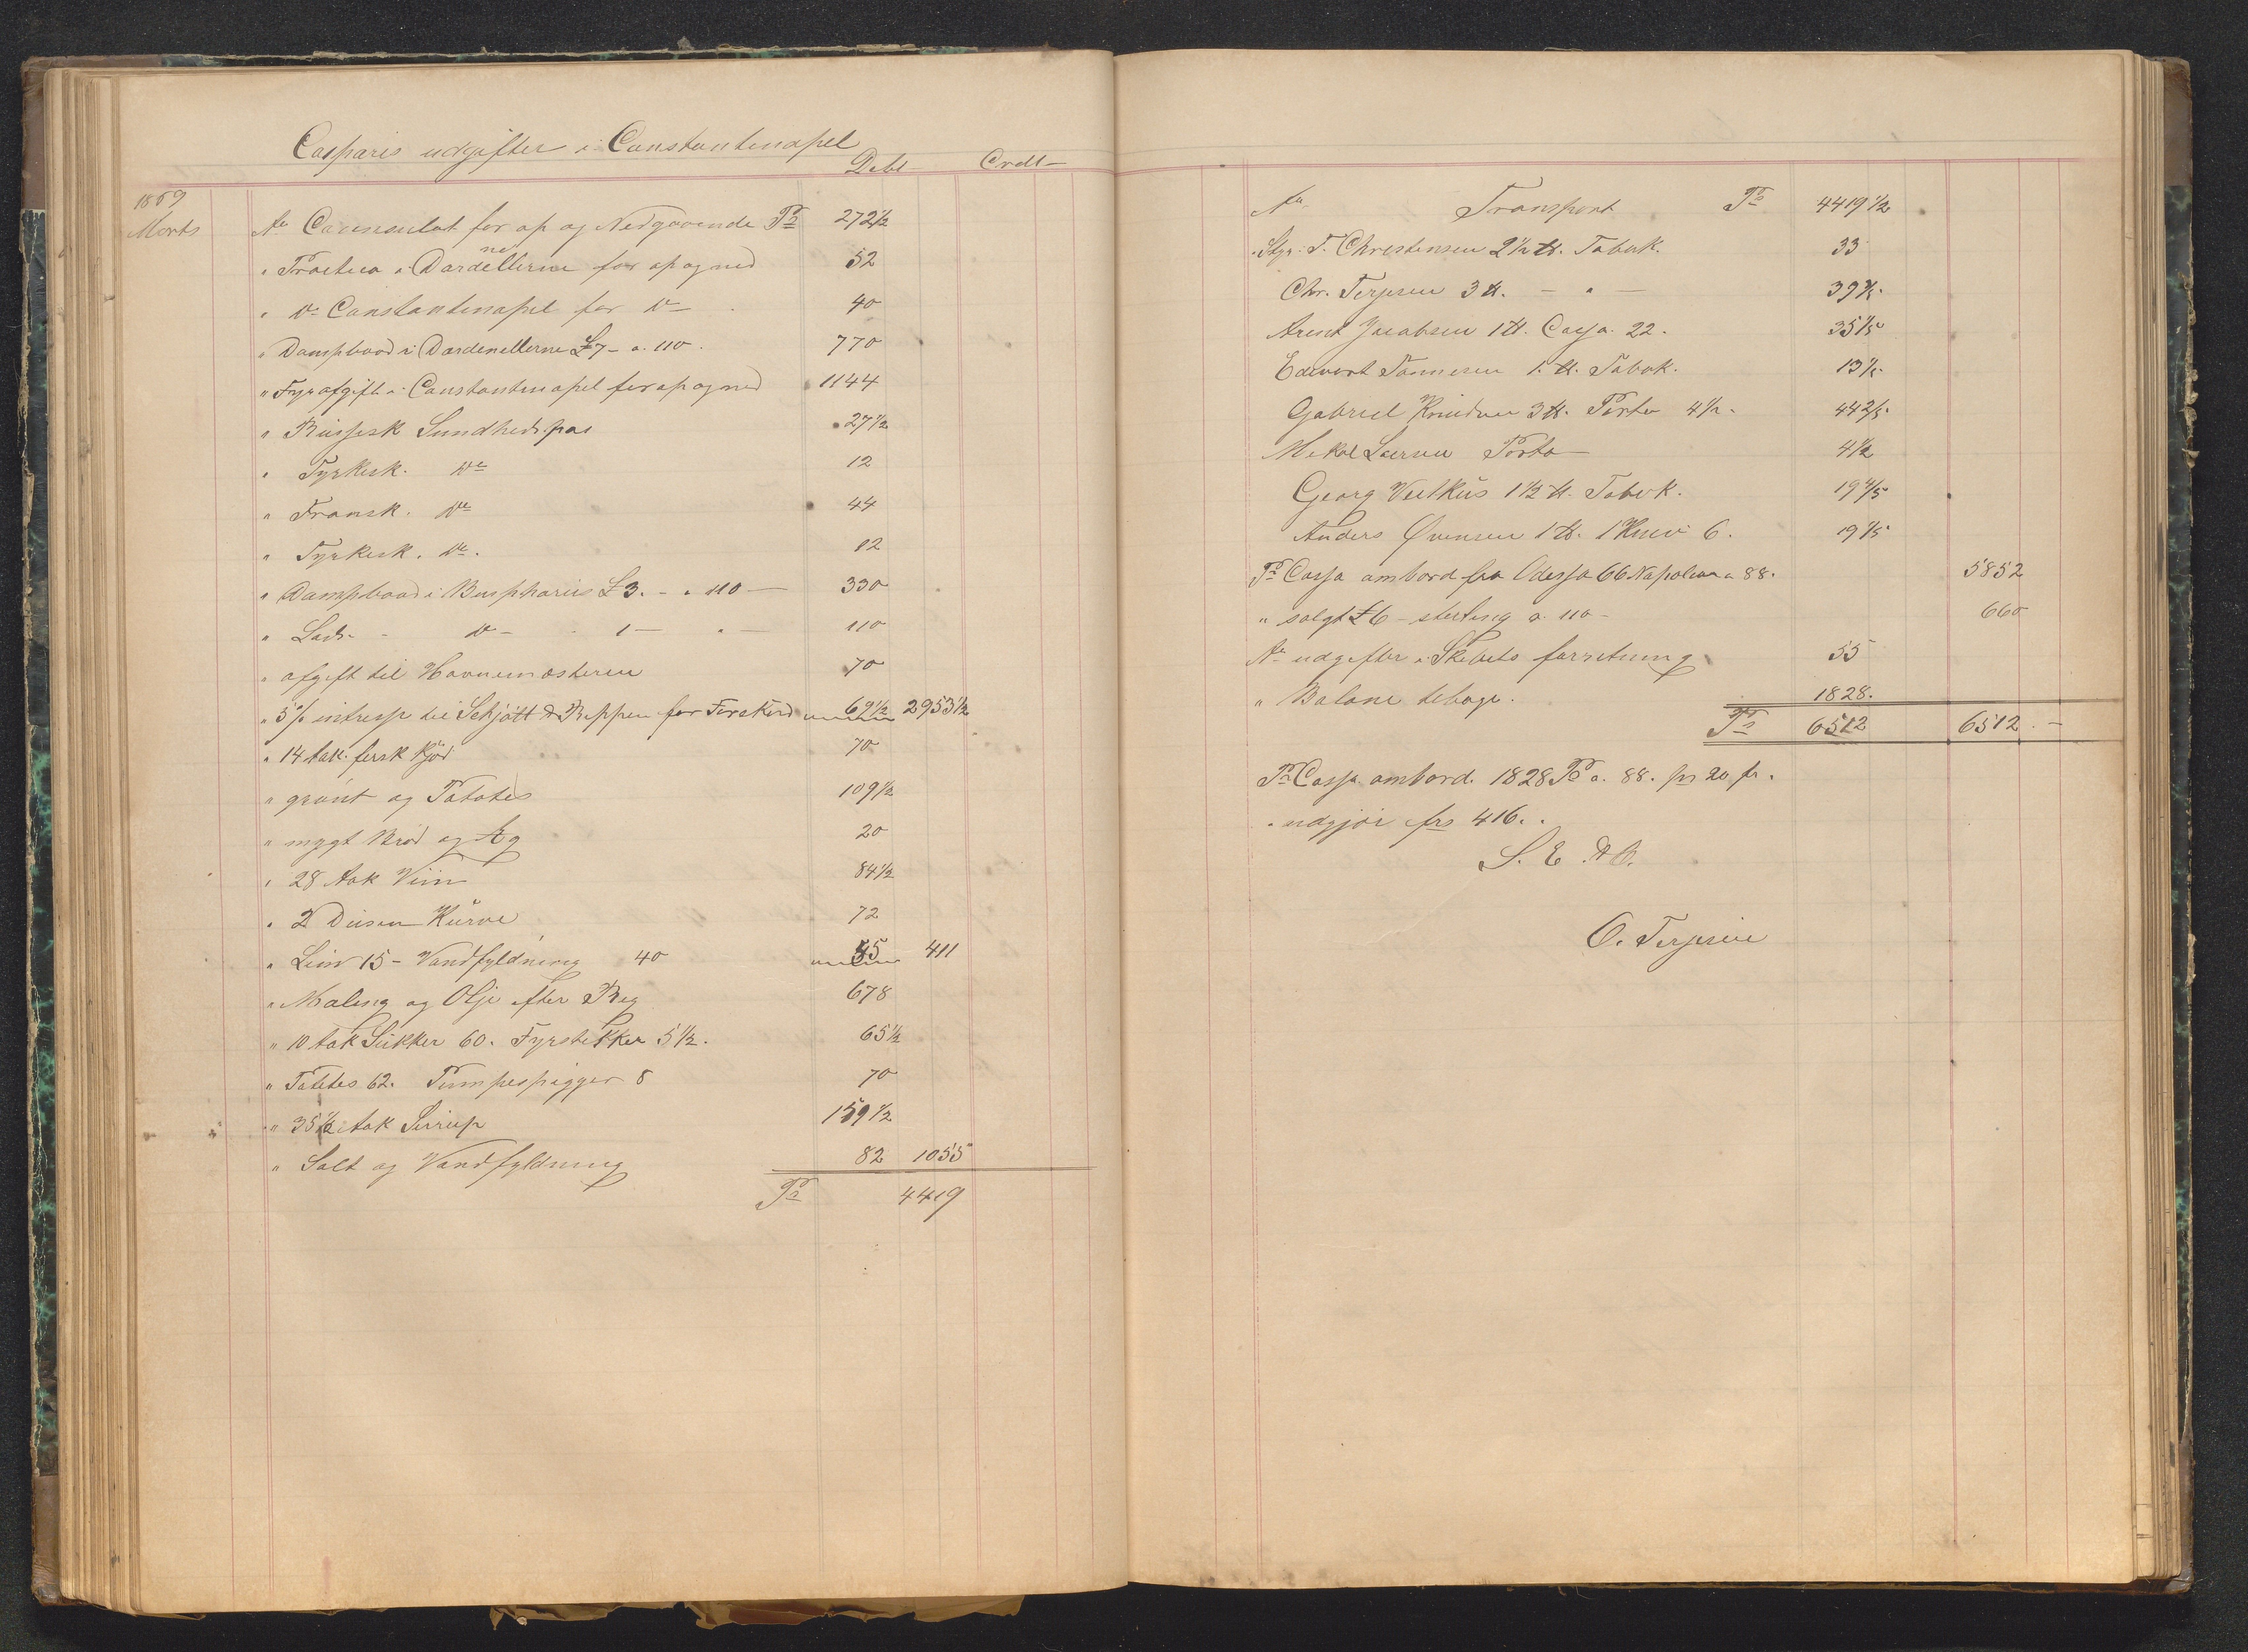 Casparis udgifter i Constantinopel
Debt Credt
1869
Marts An Counsulat for op og Nedgaaende Ps 272 1/2
" Practica i Dardenellerne for op og ned 52
" Do Constantinopel for Do 40
" Dampbaad i Dardenellerne £7 - a. 110. 770
" Fyrafgift i Constantinopel for op og ned 1144
" Russisk Sundhedspas 27 1/2
" Tyrkisk. Do 12
" Fransk. Do 44
" Tyrkisk. Do. 12
" Dampbaad i Bosphorus £3. - a 110 - 330
" Lods - Do - 1 - " - 110
" afgift til Havnemesteren 70
" 5% intresse til Schjött & Reppen for Forskud 69 1/2 2953 1/2
" 14 tok. fersk Kjöd 70
" grönt og Potates 109 1/2
" mygt Bröd og Æg 20
" 28 tok Viin 84 1/2
" 2 Dusen Kurve 72
" Liim 15 - Vandfyldning 40 55 411
" Maling og Olje efter Reg 678
" 10 tok Sukker 60. Fyrstikker 5 1/2. 65 1/2
" Potetes 62. Pumpespigger 8 70
" 35 1/2 tok Sirrup 159 1/2
" Salt og Vandfyldning 82 1055
Ps 4419
An Transport Ps 4419 1/2
" Styr. T. Christensen 2 1/2 ℔. Tabak. 33
Chr. Terjesen 3 ℔. - " - 39 3/5.
Arent Jacobsen 1 ℔. Cassa. 22. 35 1/5
Edevart Tønnesen 1 ℔. Tabak. 13 1/5.
Gabriel 3 ℔. Porto 4 1/2. 44 2/5.
Mekal Larsen Porto 4 1/2
Georg 1 1/2 ℔. Tabak. 19 4/5
Anders Øvensen 1 ℔. 1 Kniv 6. 19 1/5
Pr Cassa ombord fra Odessa 66 Napolion a 88. 5852
" solgt £6 - sterling a 110 - 660
An udgifter i Skibets forretning 55
" Balane tebage. 1828.
Ps 6512 6512. -
Pr Cassa ombord. 1828 Ps a. 88. pr 20 fr.
" udgjör frs 416. .
S. E. & O.
O. Terjesen